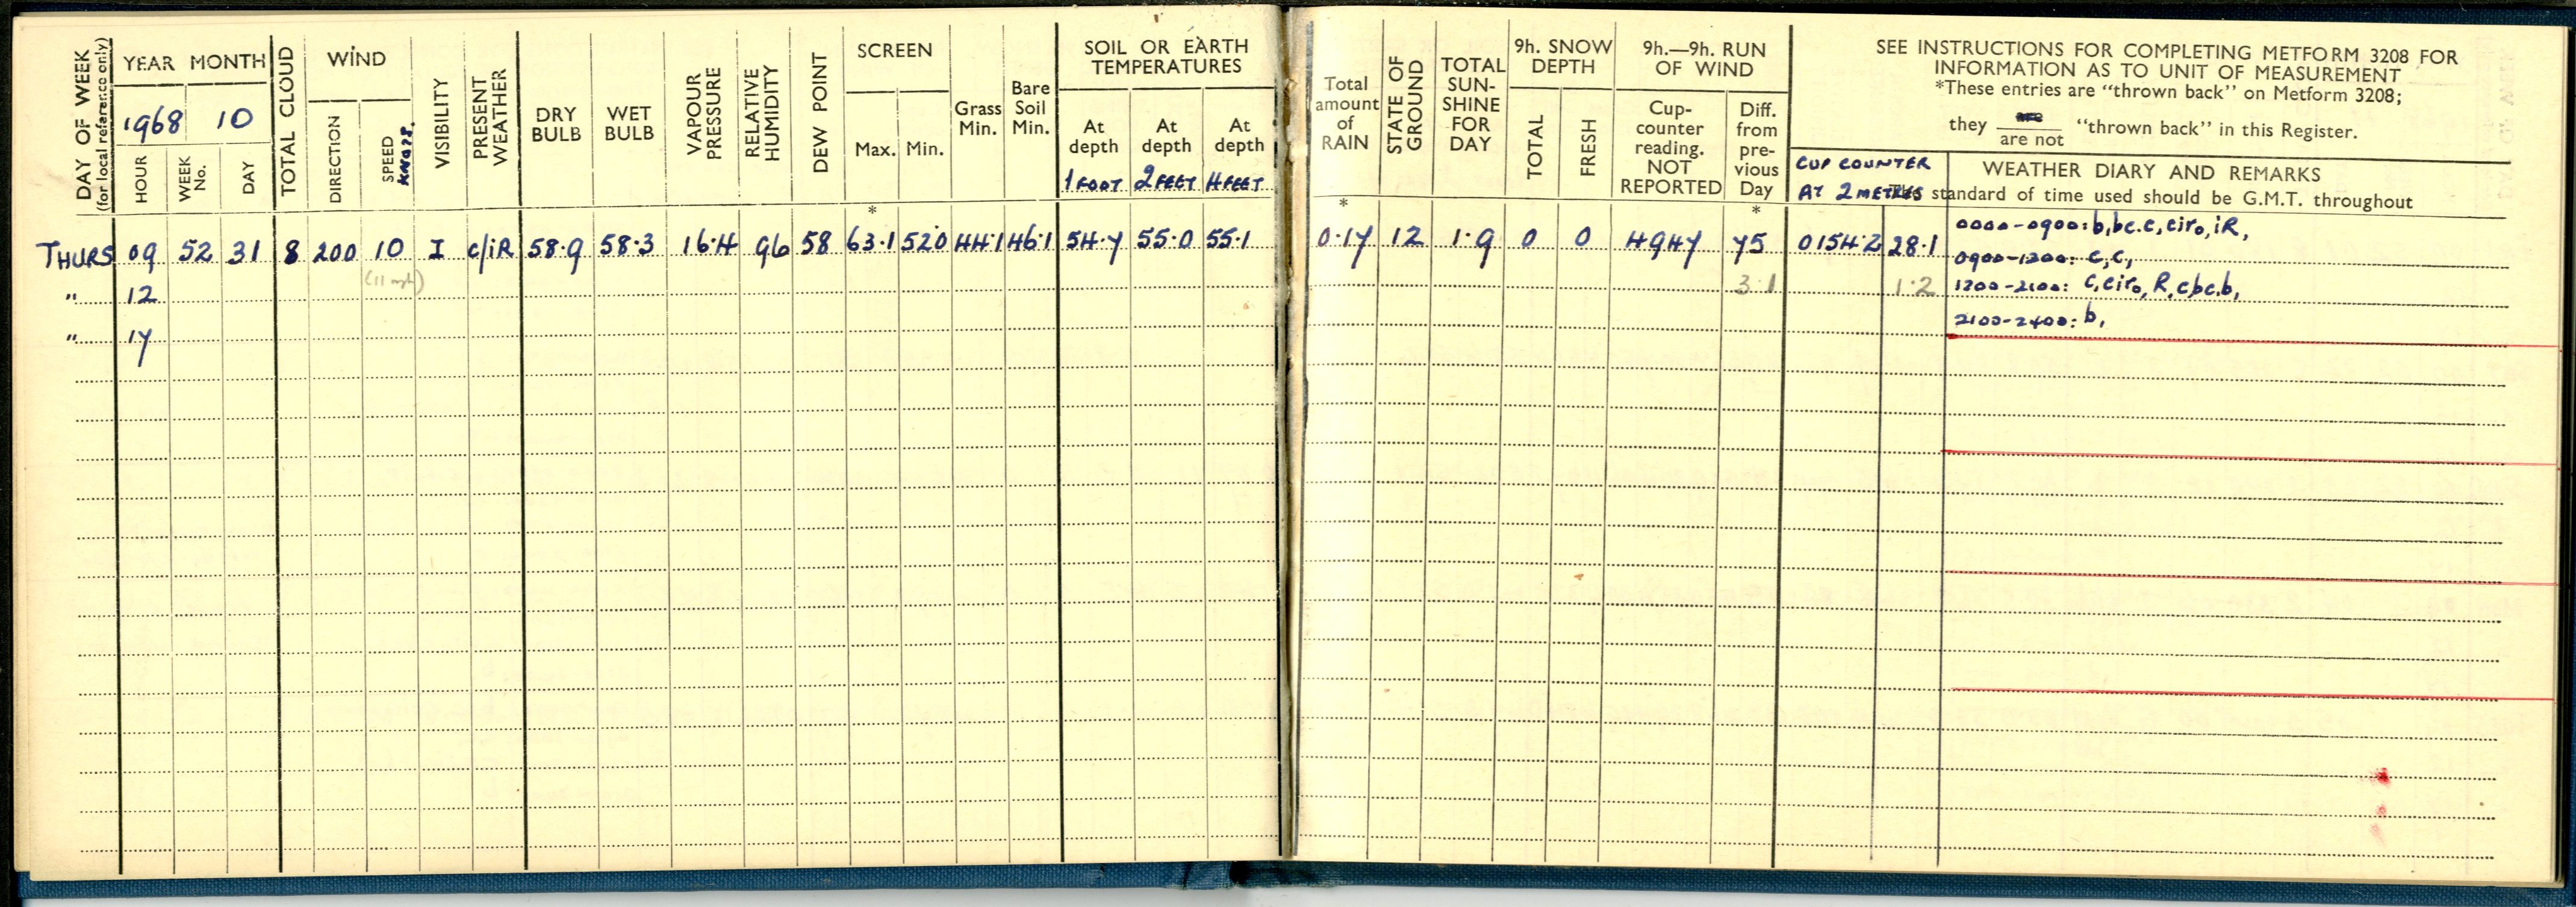 DAY OF WEEK
(for local reference only)
YEAR MONTH
1968 10
HOUR
WEEK No.
DAY
TOTAL CLOUD
WIND
DIRECTION
SPEED
KNOTS.
VISIBILITY
PRESENT WEATHER
DRY BULB
WET BULB
VAPOUR PRESSURE
RELATIVE HUMIDITY
DEW POINT
SCREEN
Max. Min.
Grass Min.
Bare Soil Min.
SOIL OR EARTH
TEMPERATURES
At depth 1 FOOT
At depth 2 FEET
At depth 4 FEET
Total amount of RAIN
STATE OF GROUND
TOTAL SUN-SHINE FOR DAY
9h. SNOW DEPTH
TOTAL
FRESH
9h.—9h. RUN OF WIND
Cup-counter reading. NOT REPORTED
Diff. from pre-vious Day
SEE INSTRUCTIONS FOR COMPLETING METFORM 3208 FOR
INFORMATION AS TO UNIT OF MEASUREMENT
*These entries are "thrown back" on Metform 3208;
they are / are not "thrown back" in this Register.
CUP COUNTER
AT 2 METRES
WEATHER DIARY AND REMARKS
The standard of time used should be G.M.T. throughout
* * *
THURS 09 52 31 8 200 10 I c/iR 58.9 58.3 16.4 96 58 63.1 52.0 44.1 46.1 54.7 55.0 55.1 0.17 12 1.9 0 0 4947 75 0154.2 28.1 0000-0900: b,bc.c,cir₀,iR,
(11 mph)
0900-1200: c,c,
" 12 3.1 1.2 1200-2100: c,cir₀,R,c,bc,b,
2100-2400: b,
" 17